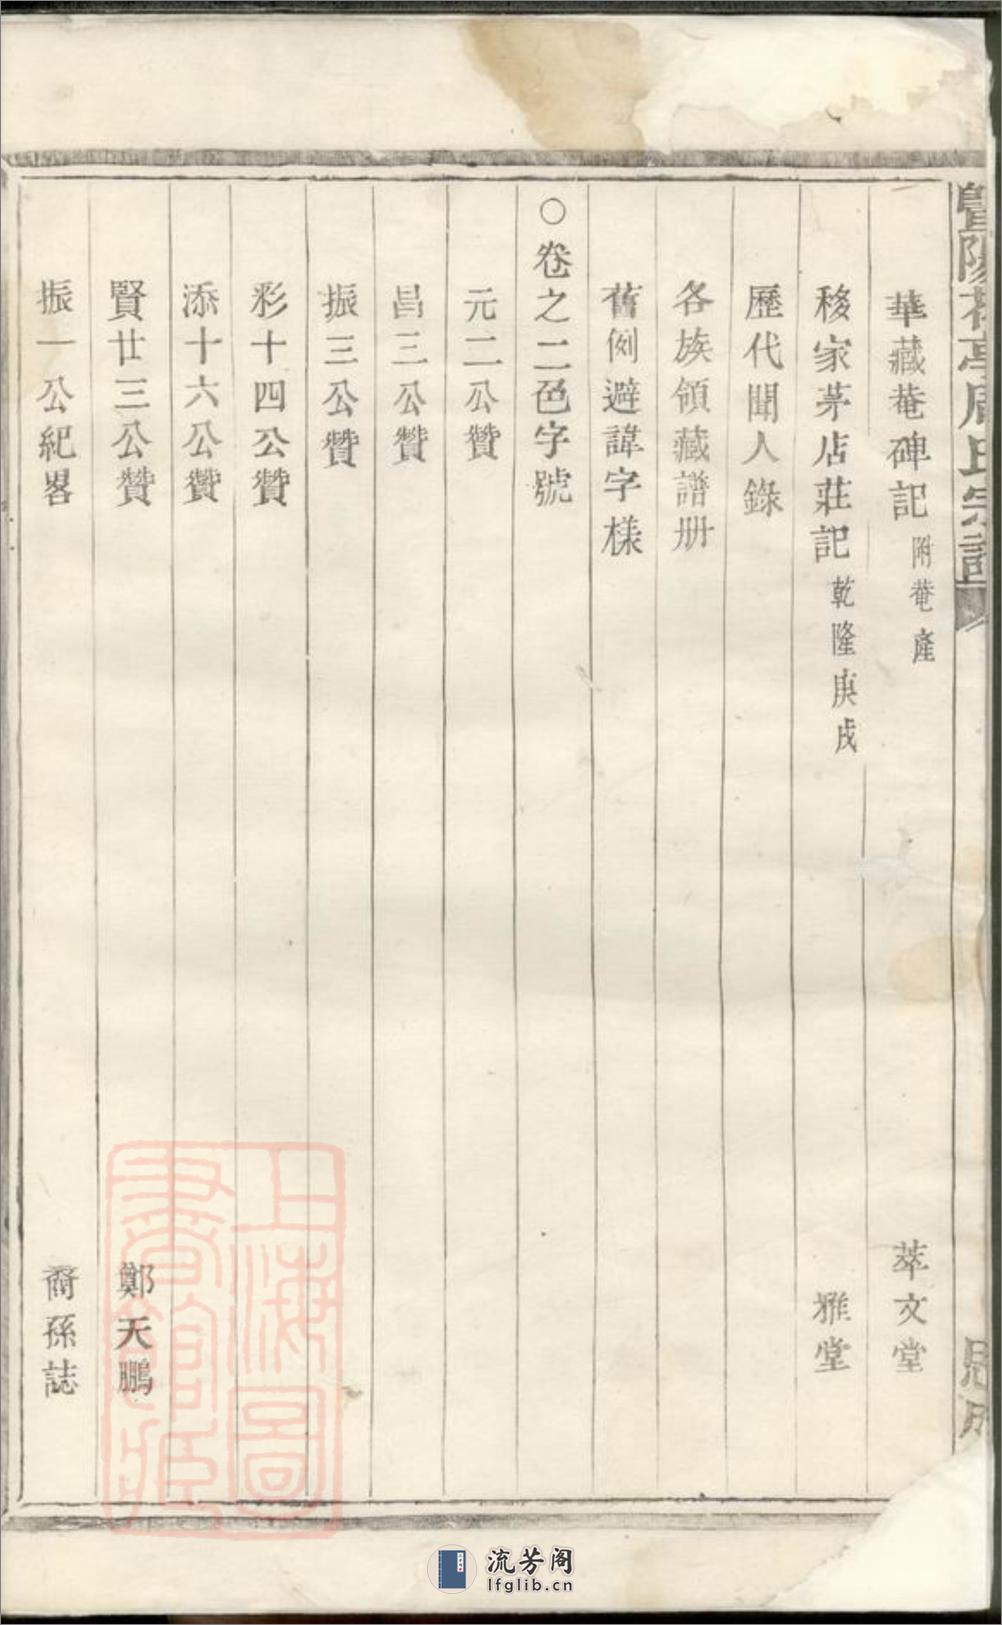 暨陽花亭周氏宗譜
華藏菴碑記 附菴產 萃文堂
移家茅店莊記 乾隆庚戌 雅堂
歷代聞人錄
各族領藏譜册
舊例避諱字樣
○卷之二色字號
元二公贊
昌三公贊
振三公贊
彩十四公贊
添十六公贊
賢廿三公贊 鄭天鵬
振一公紀畧 裔孫誌
上海圖書館藏
流芳阁
lfglib.cn